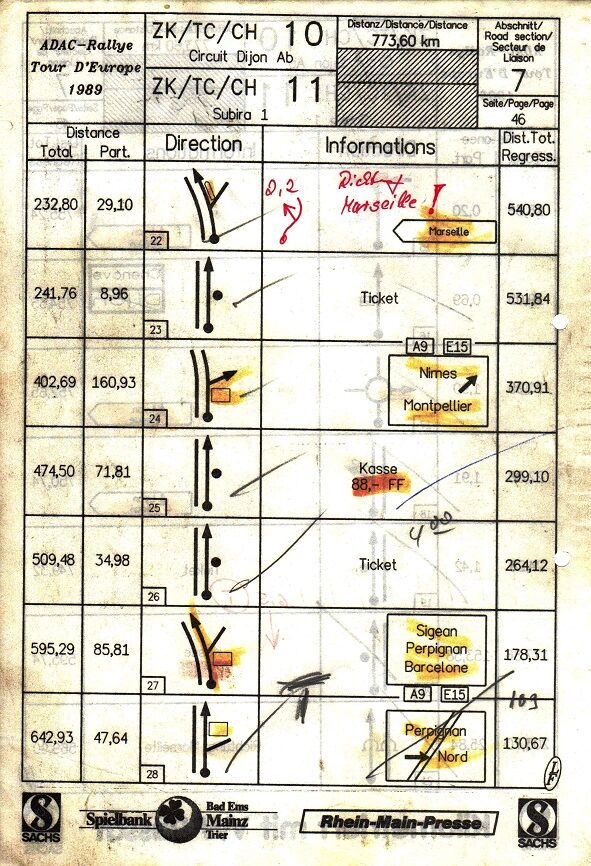 ADAC-Rallye
Tour D'Europe
1989
ZK/TC/CH 10
Circuit Dijon Ab
ZK/TC/CH 11
Subira 1
Distanz/Distance/Distance
773,60 km
Abschnitt/
Road section/
Secteur de
Liaison
7
Seite/Page/Page
46
Distance
Total Part.
Direction
Informations
Dist.Tot.
Regress.
232,80 29,10
22
2,2
Marseille !
Marseille
540,80
241,76 8,96
23
Ticket
531,84
402,69 160,93
24
A9 E15
Nimes
Montpellier
370,91
474,50 71,81
25
Kasse
88,- FF
299,10
509,48 34,98
26
400
Ticket
264,12
595,29 85,81
27
Sigean
Perpignan
Barcelone
A9 E15
178,31
103
642,93 47,64
28
Perpignan
Nord
130,67
SACHS
Spielbank
Bad Ems
Mainz
Trier
Rhein-Main-Presse
SACHS